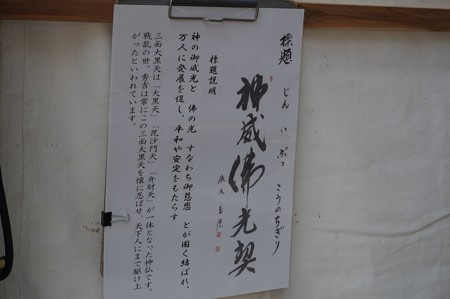 標題
じん い ぶっ こうのちぎり
神威佛光契
標題説明
神の御威光と 佛の光 すなわち御慈悲 とが固く結ばれ、
万人に発展を促し、平和や安定をもたらす
三面大黒天は「大黒天」「毘沙門天」「弁財天」が一体となった神仏です。
戦乱の世、秀吉は常にこの三面大黒天を懐に忍ばせ、天下人にまで駆け上
がったといわれています。